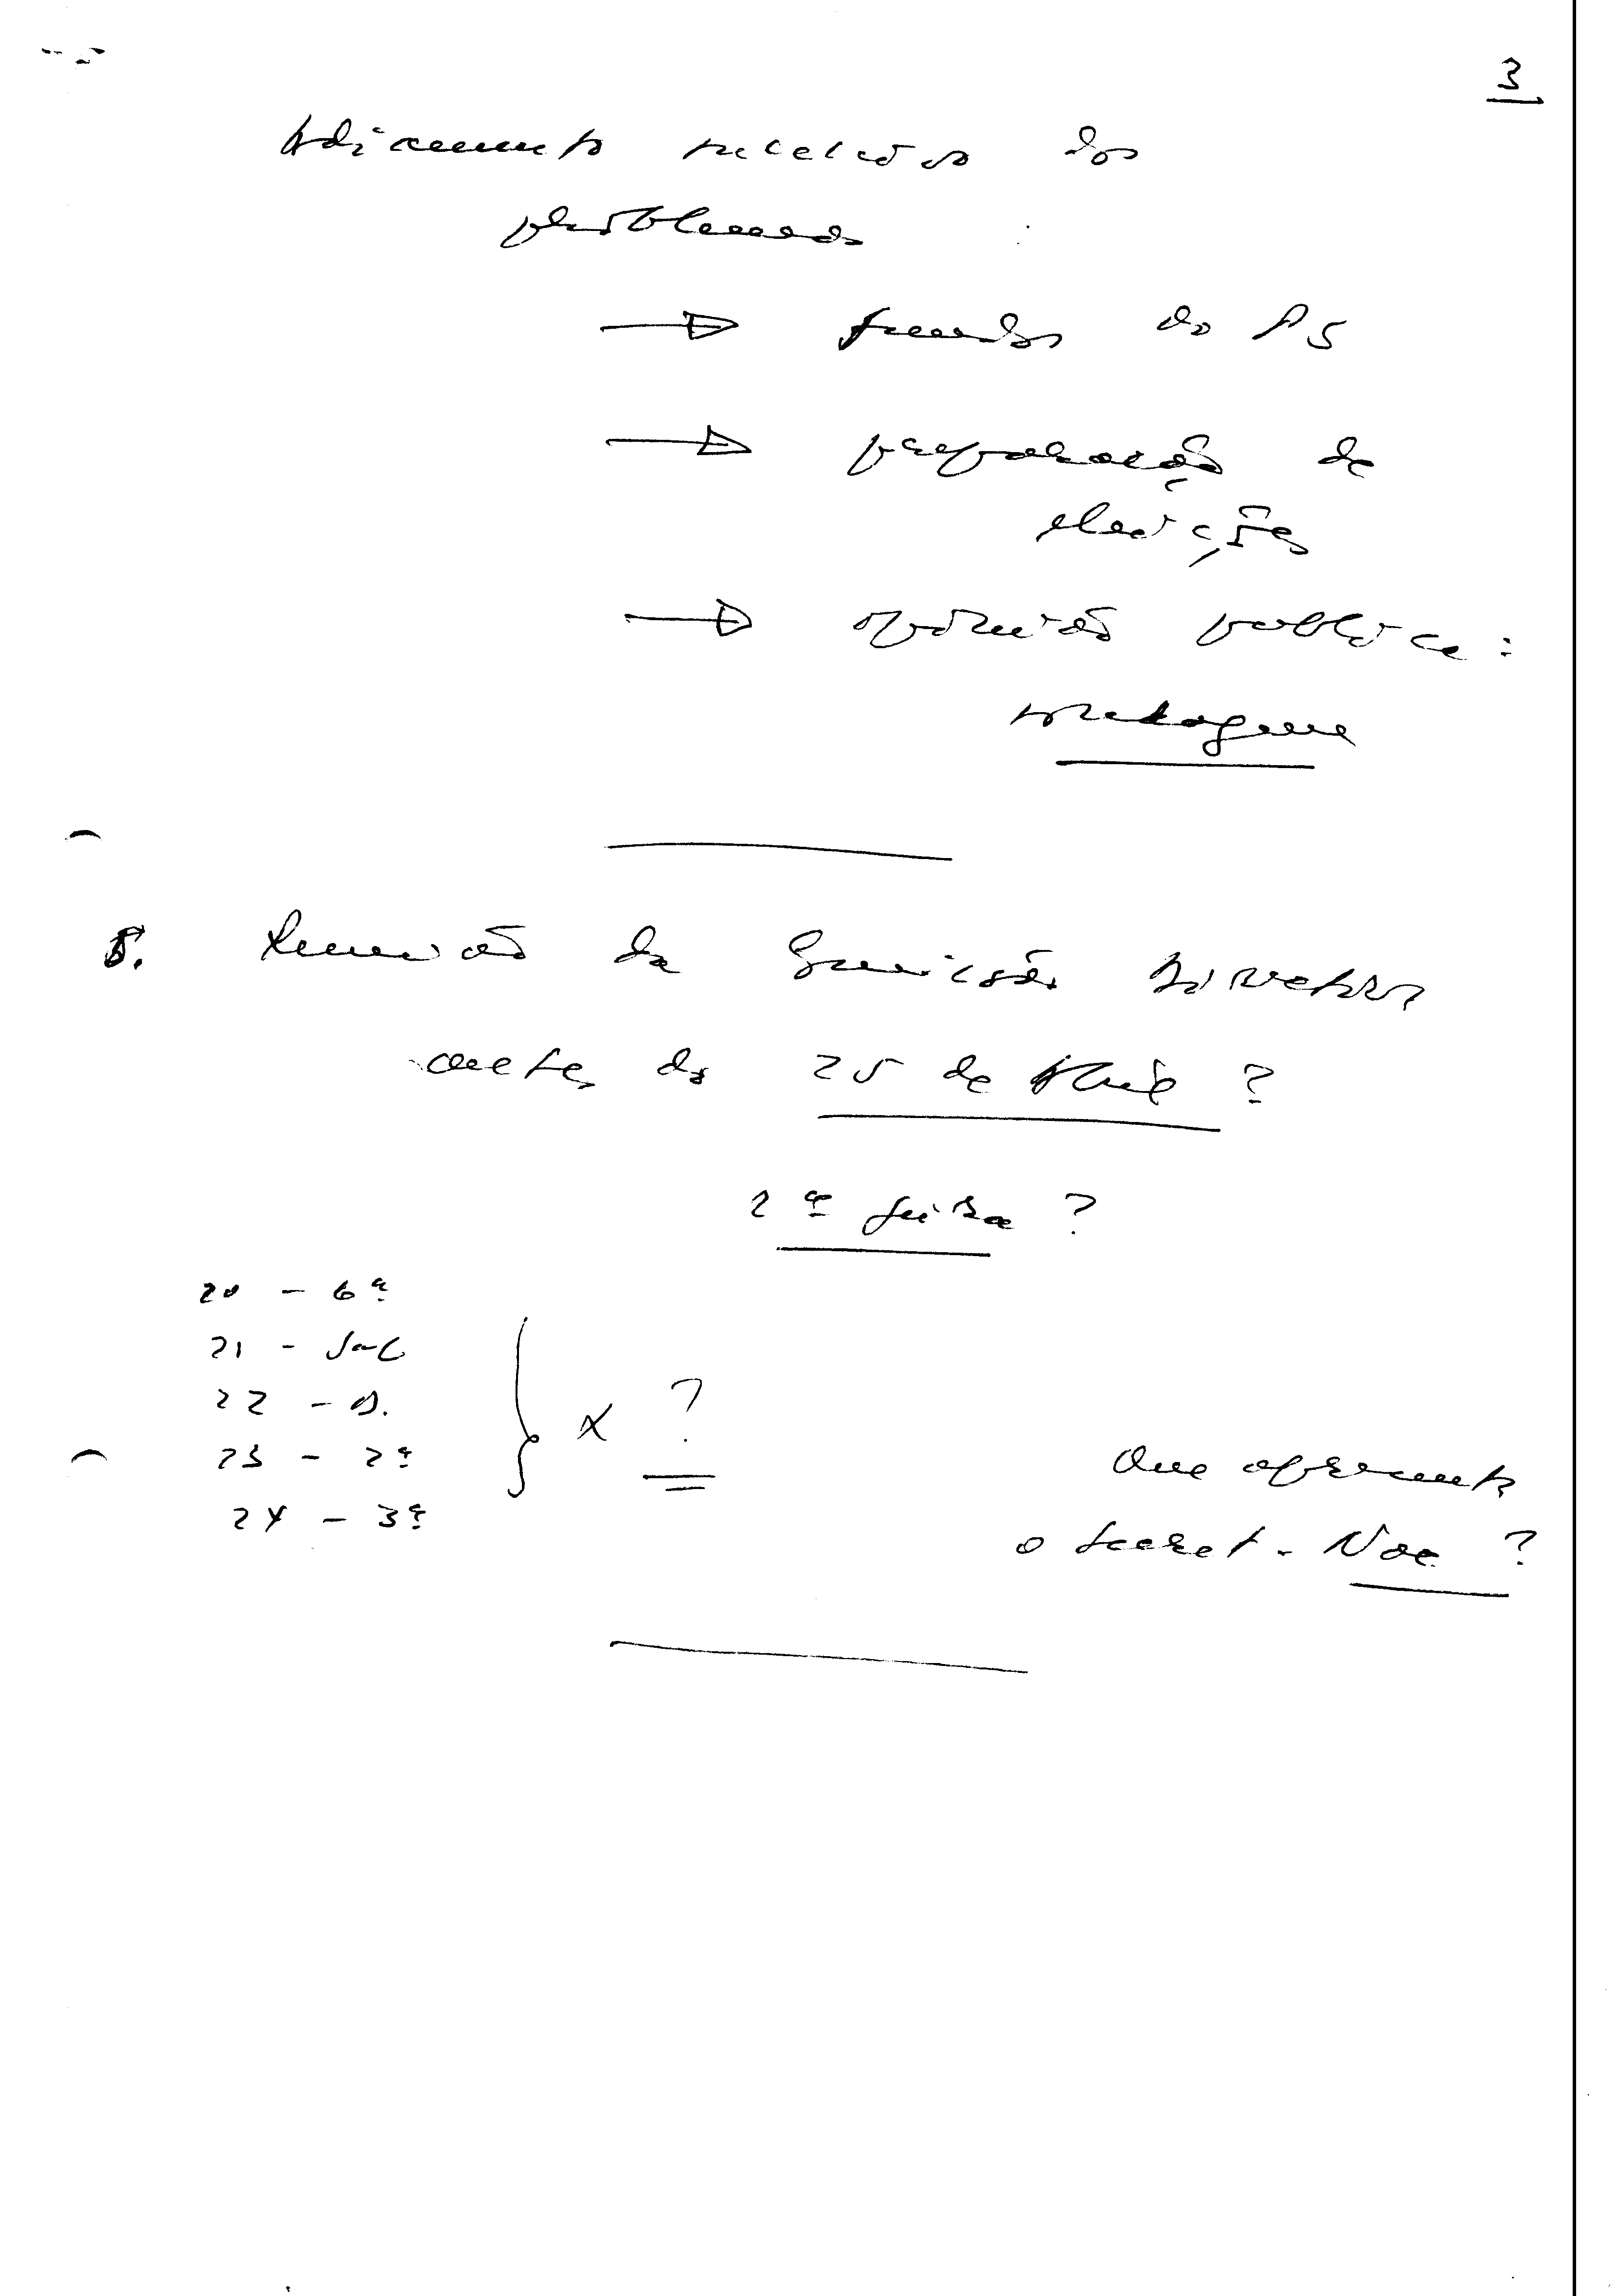 3
Adiamento sucessivo dos
problemas
→ fundos do PS
→ preparação de
eleições
→ opinião pública:
sondagem
8. Reunião da Comissão Directiva
antes do 25 de Abril?
2ª feira?
20 - 6ª
21 - Sab
22 - D.
23 - 2ª
24 - 3ª
x ?
Que apresenta
o Secret. Nac. ?